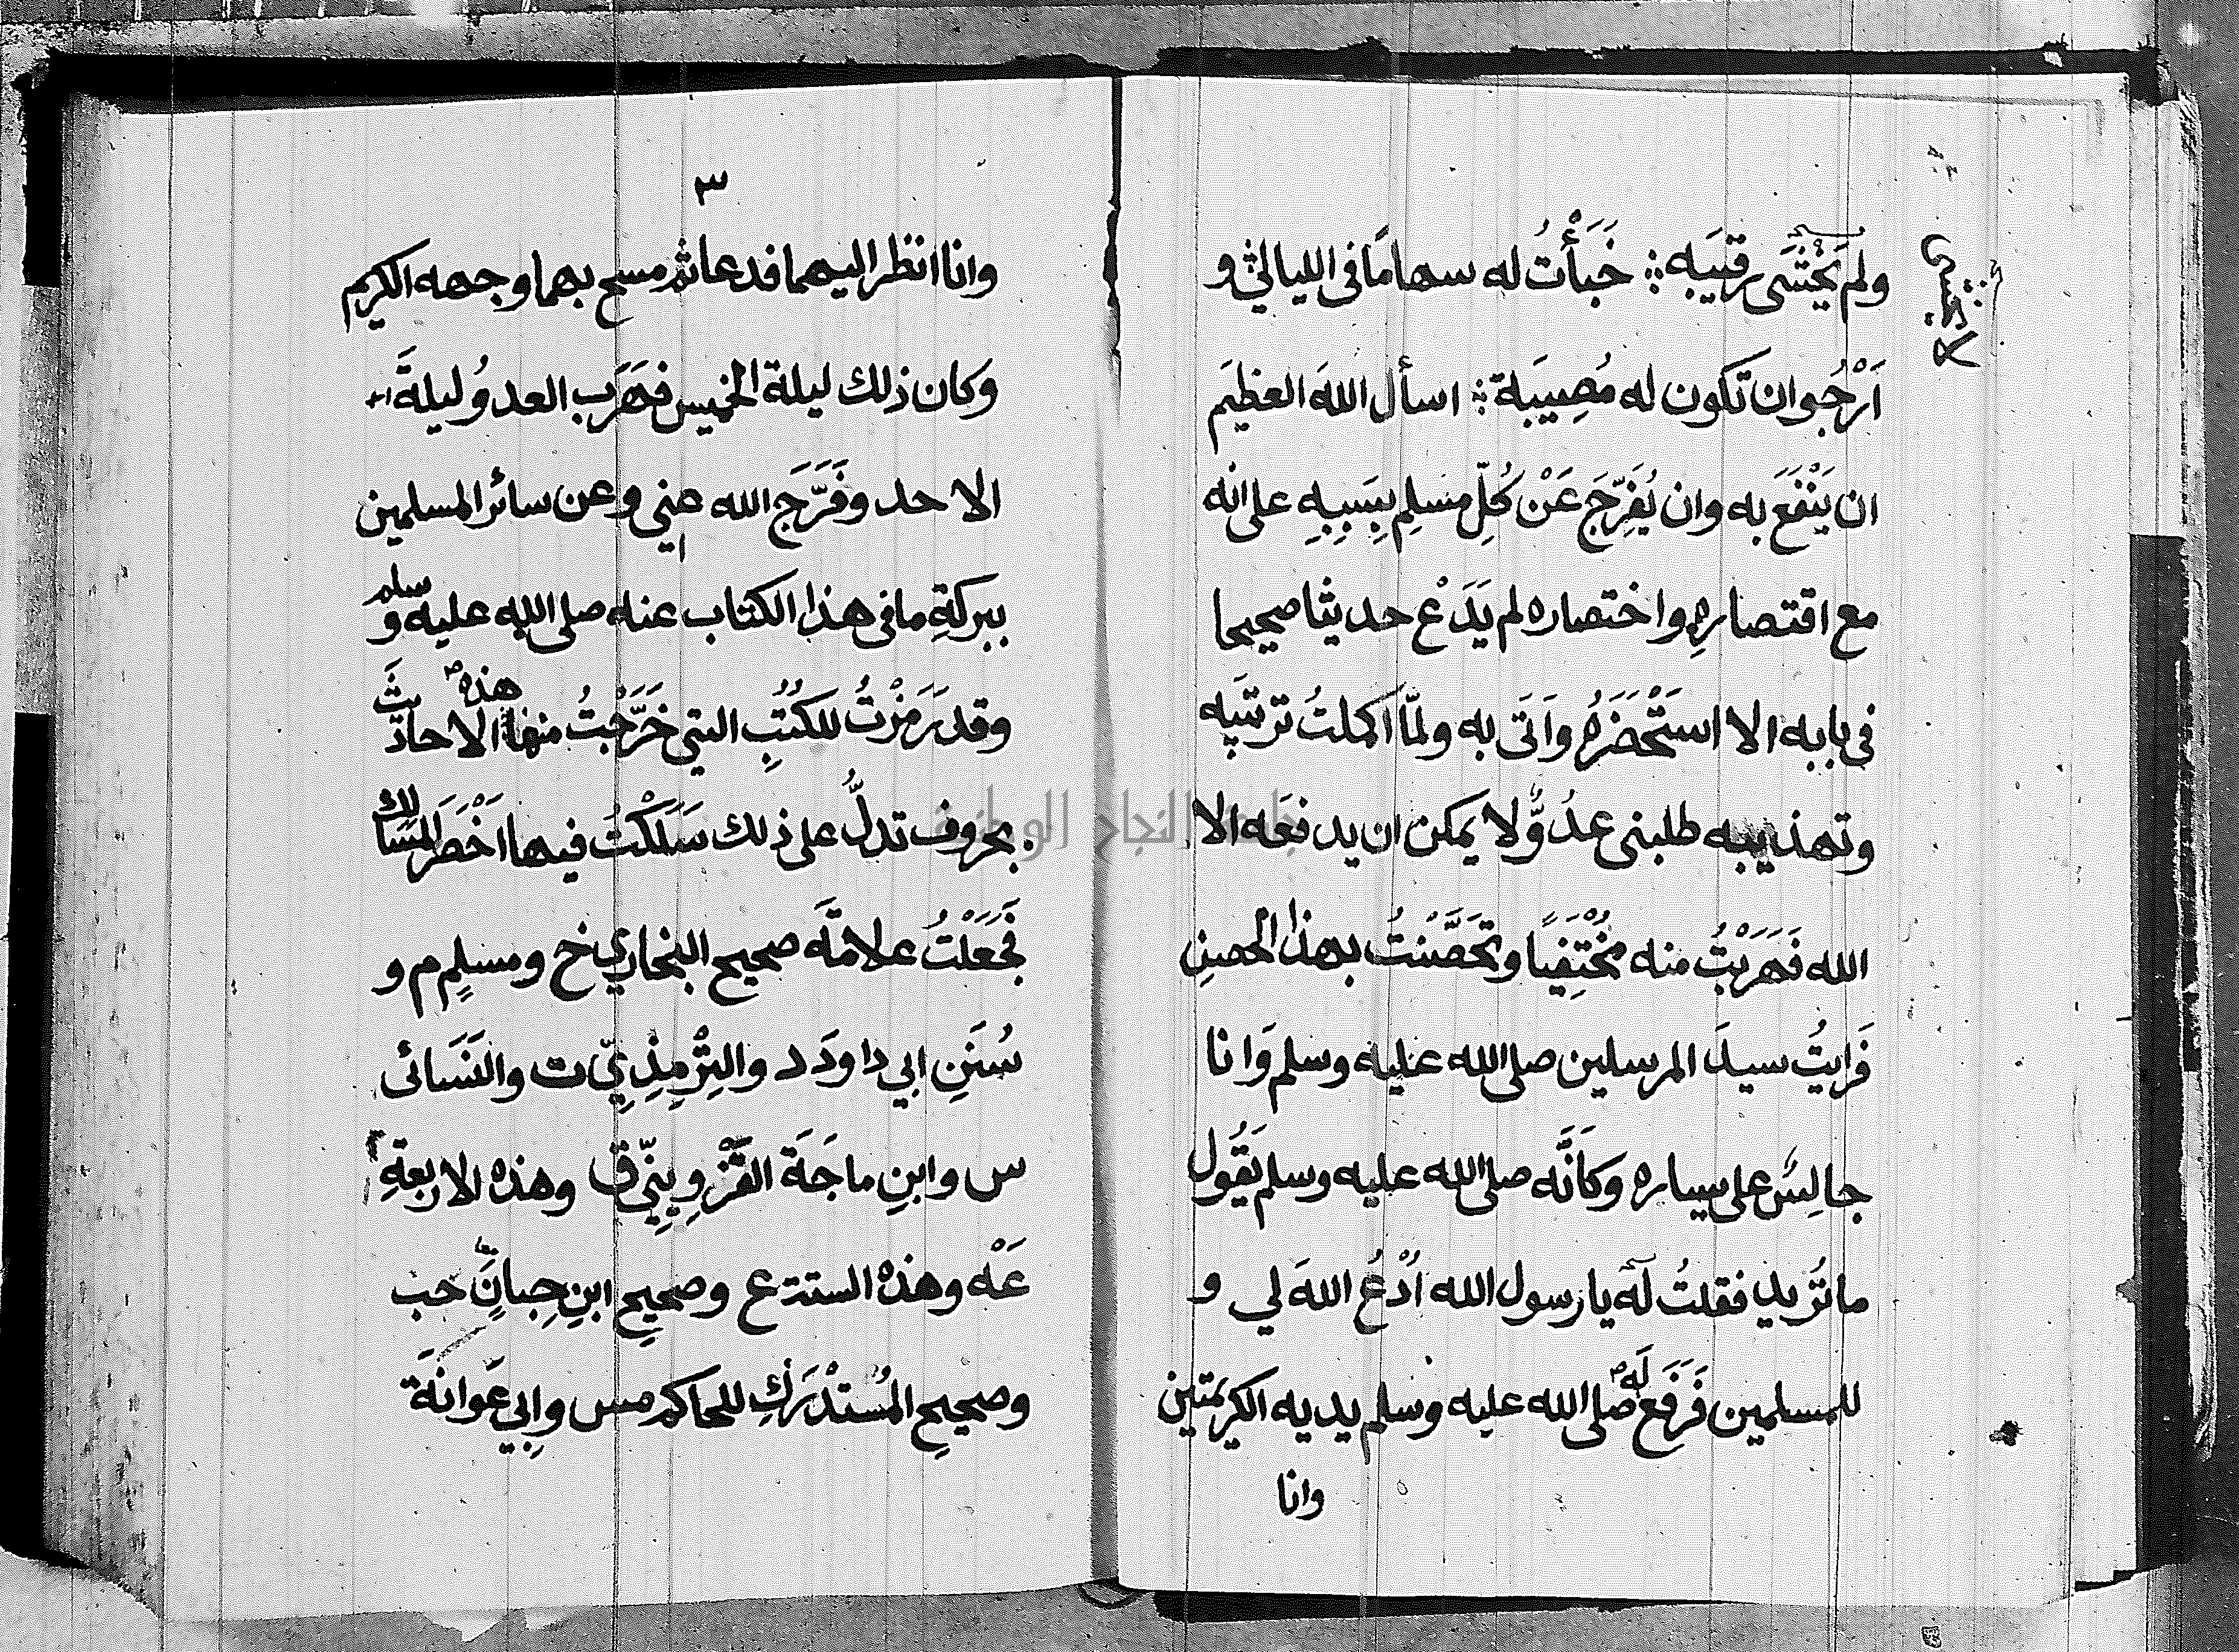 ولم يَخْشَى رقيبَه ⁘ خَبَأْتُ له سهامًا فى الليالي و
لا يخشى
اَرْجُو ان تكون له مُصِيبَة ⁘ اسأل اللهَ العظيمَ
ان يَنْفَعَ به وان يُفَرِّجَ عَنْ كُلِّ مسْلِمٍ بِسَبِبِهِ على انه
مع اقتصارهِ واختصاره لم يَدَعْ حديثا صحيحا
فى بابه الا اسْتَحْضَرَهُ وَاَتَى به ولمّا اكملتُ ترتيبَه
وتهذيبه طلبنى عدُوٌّ لا يمكن ان يدفعَه الا
الله فَهَرَبْتُ منه مُخْتَفِيًا وتَحَصَّنْتُ بهذا الحصنِ
فَرايتُ سيدَ المرسلين صلى الله عليه وسلم وَانا
جالِسٌ على يساره وكَاَنَّه صلى الله عليه وسلم يَقُول
ما تُريد فقلتُ لَه يا رسول الله اُدْعُ اللهَ لي و
للمسلمين فَرَفَعَ لَه صلى الله عليه وسلم يديه الكريمتين
وانا
٣
وانا انظر اليهما فدعا ثم مسح بهما وجهه الكريم
وَكان ذلك ليلة الخميس فهَرَب العدوُ ليلةَ
الاحد وفَرَّجَ الله عني وعن سائر المسلمين
ببركةِ ما فى هذا الكتاب عنه صلى الله عليه وسلم
وقد رَمَزْتُ للكُتُبِ التي خَرَّجْتُ منها هذه الاحاديثَ
بحروف تدلُّ على ذلك سَلَكْتُ فيها اَخْصَرَ المَسَالك
فَجَعَلْتُ علامَةَ صحيح البخاريِ خ ومسلِمٍ م و
سُنَنِ ابي داودَ د والتِّرْمِذِيِّ ت والنَسَائى
س وابنِ ماجَةَ القَزْوِينِيِّ ق وهذه الاربعةِ
عَهْ وهذه الستة ع وصحيحِ ابنِ حِبانَ حب
وصحيحِ المُسْتَدْرَكِ للحاكم مس وابِي عَوانَة
جامعة النجاح الوطنية